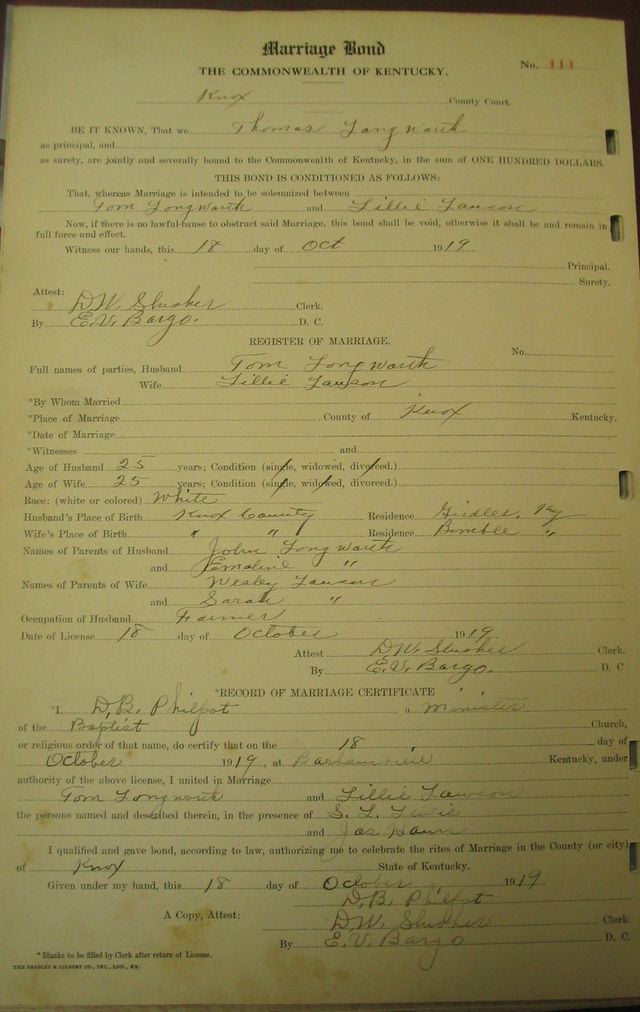 Marriage Bond
No. 111
THE COMMONWEALTH OF KENTUCKY.
Knox County Court.
BE IT KNOWN, That we Thomas Longworth
as principal, and
as surety, are jointly and severally bound to the Commonwealth of Kentucky, in the sum of ONE HUNDRED DOLLARS.
THIS BOND IS CONDITIONED AS FOLLOWS:
That, whereas Marriage is intended to be solemnized between
Tom Longworth and Lillie Lawson
Now, if there is no lawful cause to obstruct said Marriage, this bond shall be void, otherwise it shall be and remain in
full force and effect.
Witness our hands, this 18 day of Oct 1919.
Principal.
Surety.
Attest:
D.W. Slusher Clerk.
By E.V. Bargo. D. C.
REGISTER OF MARRIAGE.
No.
Full names of parties, Husband Tom Longworth
Wife Lillie Lawson
*By Whom Married
*Place of Marriage County of Knox Kentucky.
*Date of Marriage
*Witnesses and
Age of Husband 25 years; Condition (single, widowed, divorced.)
Age of Wife 25 years; Condition (single, widowed, divorced.)
Race: (white or colored) White
Husband's Place of Birth Knox County Residence Girdler, Ky
Wife's Place of Birth " " Residence Bimble "
Names of Parents of Husband John Longworth
and Emaline "
Names of Parents of Wife Wesley Lawson
and Sarah "
Occupation of Husband Farmer
Date of License 18 day of October 1919.
Attest D.W. Slusher Clerk.
By E.V. Bargo. D. C
*RECORD OF MARRIAGE CERTIFICATE
*I, D.B. Philpot a Minister
of the Baptist Church,
or religious order of that name, do certify that on the 18 day of
October 1919, at Barbourville Kentucky, under
authority of the above license, I united in Marriage
Tom Longworth and Lillie Lawson
the persons named and described therein, in the presence of S. L. Lewis
and Jas Hamm
I qualified and gave bond, according to law, authorizing me to celebrate the rites of Marriage in the County (or city)
of Knox State of Kentucky.
Given under my hand, this 18 day of October 1919
D.B. Philpot
A Copy, Attest: D.W. Slusher Clerk.
By E.V. Bargo D. C.
* Blanks to be filled by Clerk after return of License.
THE BRADLEY & GILBERT CO., INC., LOU., KY.